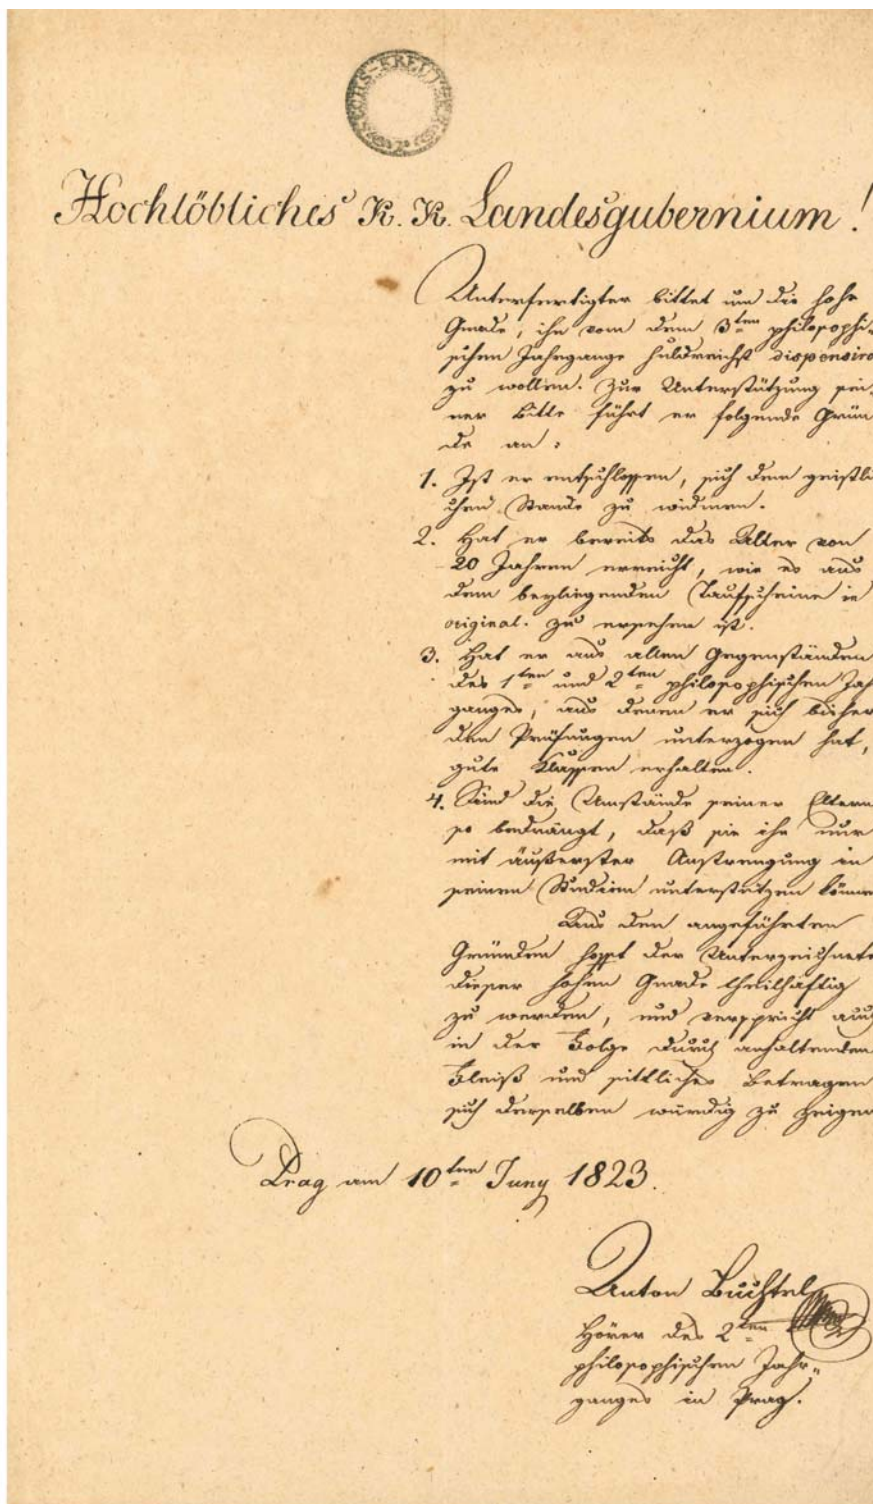 SECHS-KREUTZER
Hochlöbliches K. K. Landesgubernium!
Unterfertigter bittet um die hohe
Gnade, ihn vom dem 3ten philosophi-
schen Jahrgange huldreichst dispensire
zu wollen. Zur Unterstützung sei-
ner Bitte führt er folgende Grün
de an:
1. Ist er entschlossen, sich dem geistli
chen Stande zu widmen.
2. Hat er bereits das Alter von
20 Jahren erreicht, wie es aus
dem beyliegenden Taufscheine in
original. zu ersehen ist.
3. Hat er aus allen Gegenständen
des 1ten und 2ten philosophischen Jah
ganges, aus denen er sich bisher
den Prüfungen unterzogen hat,
gute Klassen erhalten.
4. Sind die Umstände seiner Eltern
so bedrängt, daß sie ihn nur
mit äußerster Anstrengung in
seinen Studien unterstützen könne
Aus den angeführten
Gründen hofft der Unterzeichnete
dieser hohen Gnade theilhäftig
zu werden, und verspricht auch
in der Folge durch anhaltenden
Fleiß und sittliches Betragen
sich derselben würdig zu zeigen
Prag am 10ten Juny 1823.
Anton Buchtel
Hörer des 2ten
philosophischen Jahr-
ganges in Prag.